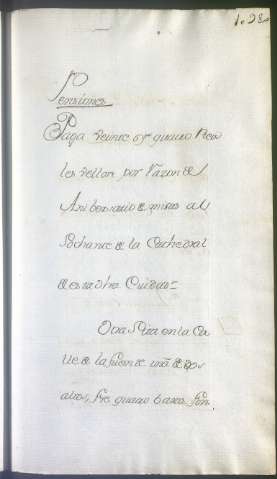 Pensiones
Paga veinte y quatro Rea
les vellon por razon de
Aniversario de misas al
Dechanato de la Cathedral
de esta dha Ciudad=
Otra Sita en la Ca
lle de la fuente una de dos
altos, fte quatro baras, fon